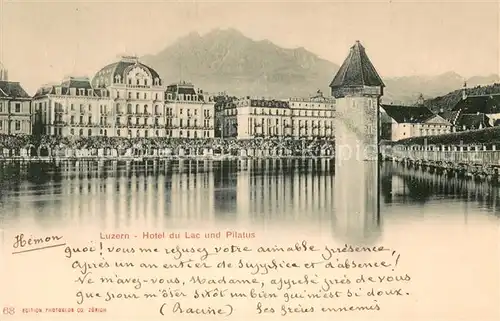 Luzern - Hotel du Lac und Pilatus
Hémon
quoi! vous me refusez votre aimable présence,
Après un an entier de supplice et d'absence!
Ne m'avez-vous, Madame, appelé près de vous
que pour m'ôter sitôt un bien qui m'est si doux.
(Racine) Les frères ennemis
68 EDITION PHOTOGLOB CO. ZÜRICH